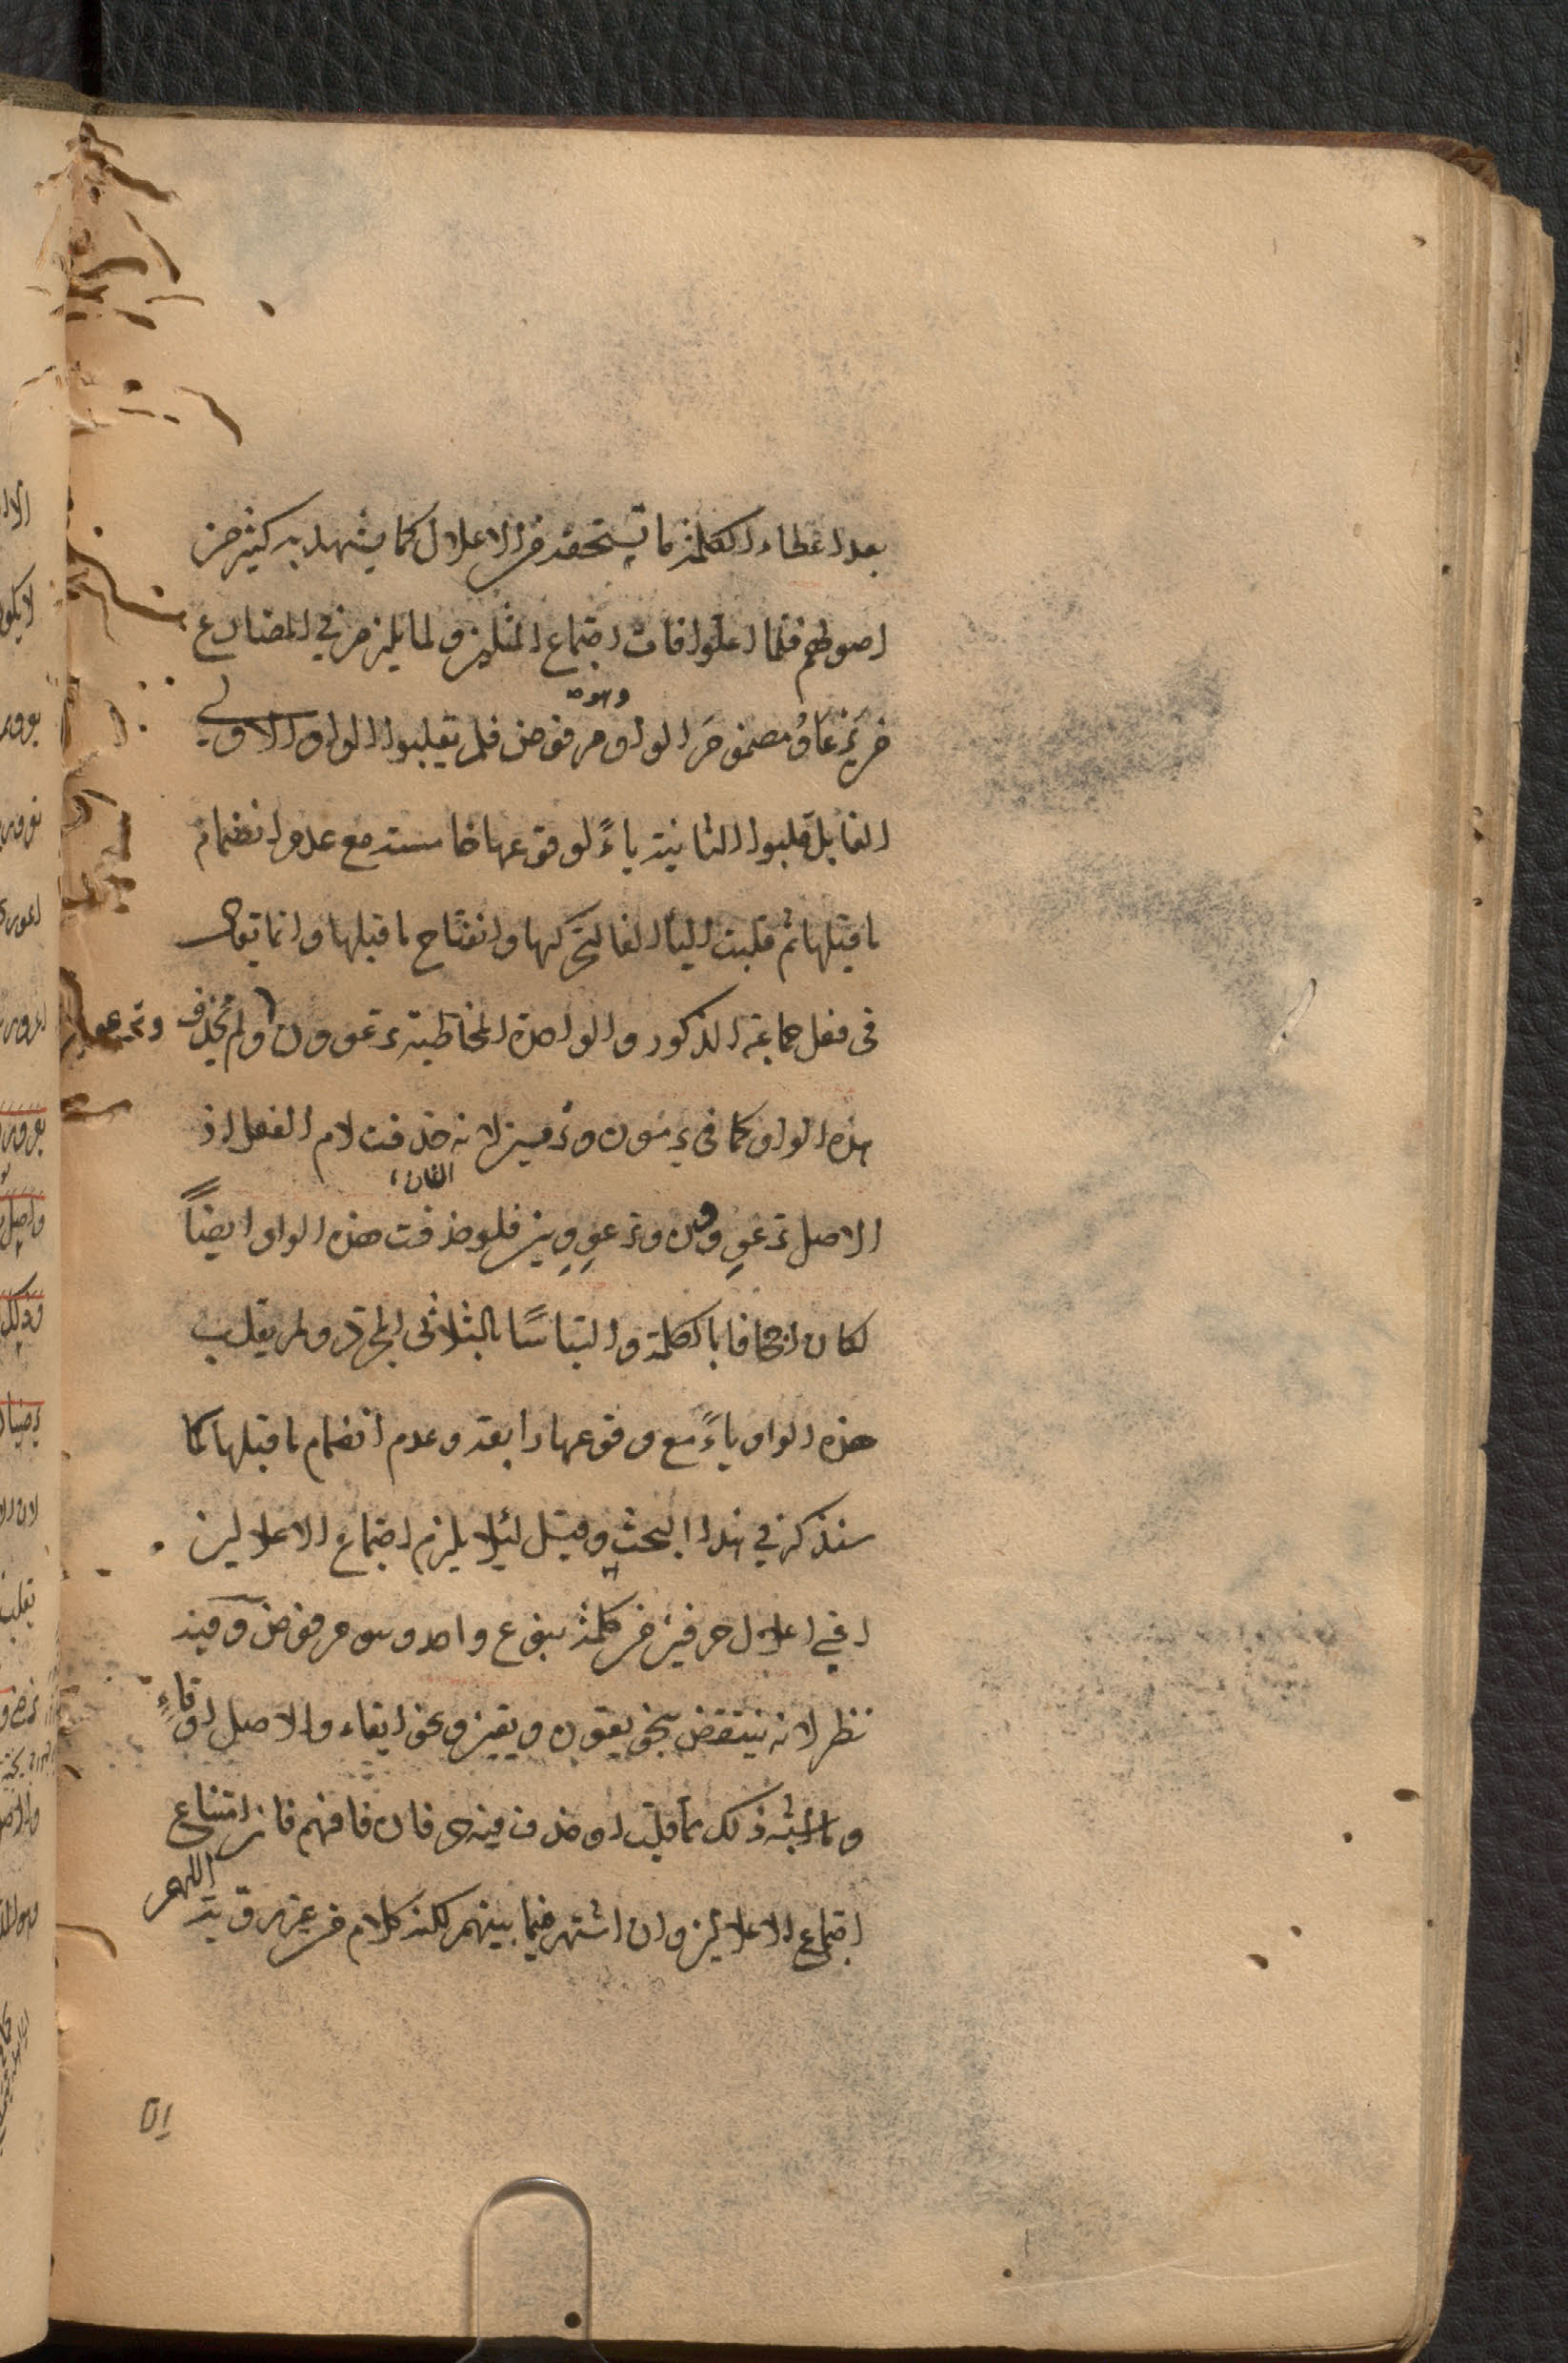 بعد اعطاء الكلمة ما يستحقه من الاعلال كما يشهد به كثير من
اصولهم فلما اعلوا فات اجتماع المثلين ولما يلزم في المضارع
من يرعاو مضموم الواو وهو مرفوض فلم يقلبوا الواو الاولى
الفا بل قلبوا الثانية ياءً لوقوعها خامسة مع عدم انضمام
ما قبلها ثم قلبت الياء الفا لتحركها وانفتاح ما قبلها وانما يقال
فى فعل جماعة الذكور والواحدة المخاطبة يرعوون ولم يحذف
هذه الواو كما فى يرمون وترمين لانه حذفت لام الفعل اذ
الاصل يرعوون وترعووين فلو حذفت هذه الواو ايضاً
لكان اجحافا بالكلمة والتباسًا بالثلاثى المجرد ولم يقلب
هذه الواو ياءً مع وقوعها رابعة وعدم انضمام ما قبلها لما
سنذكر في هذا البحث وقيل لئلا يلزم اجتماع الاعلالين
اي اعلال حرفين من كلمة بنوع واحد وهو مرفوض وفيه
نظر لانه ينتقض بنحو يقون ويقين ونحو ايقاء والاصل اوقاء
وما اشبه ذلك مما قلب او حذف فيه حرفان فافهم فان امتناع
اجتماع الاعلالين وان اشتهر فيما بينهم لكنه كلام من غير روية
اللهم
٥١